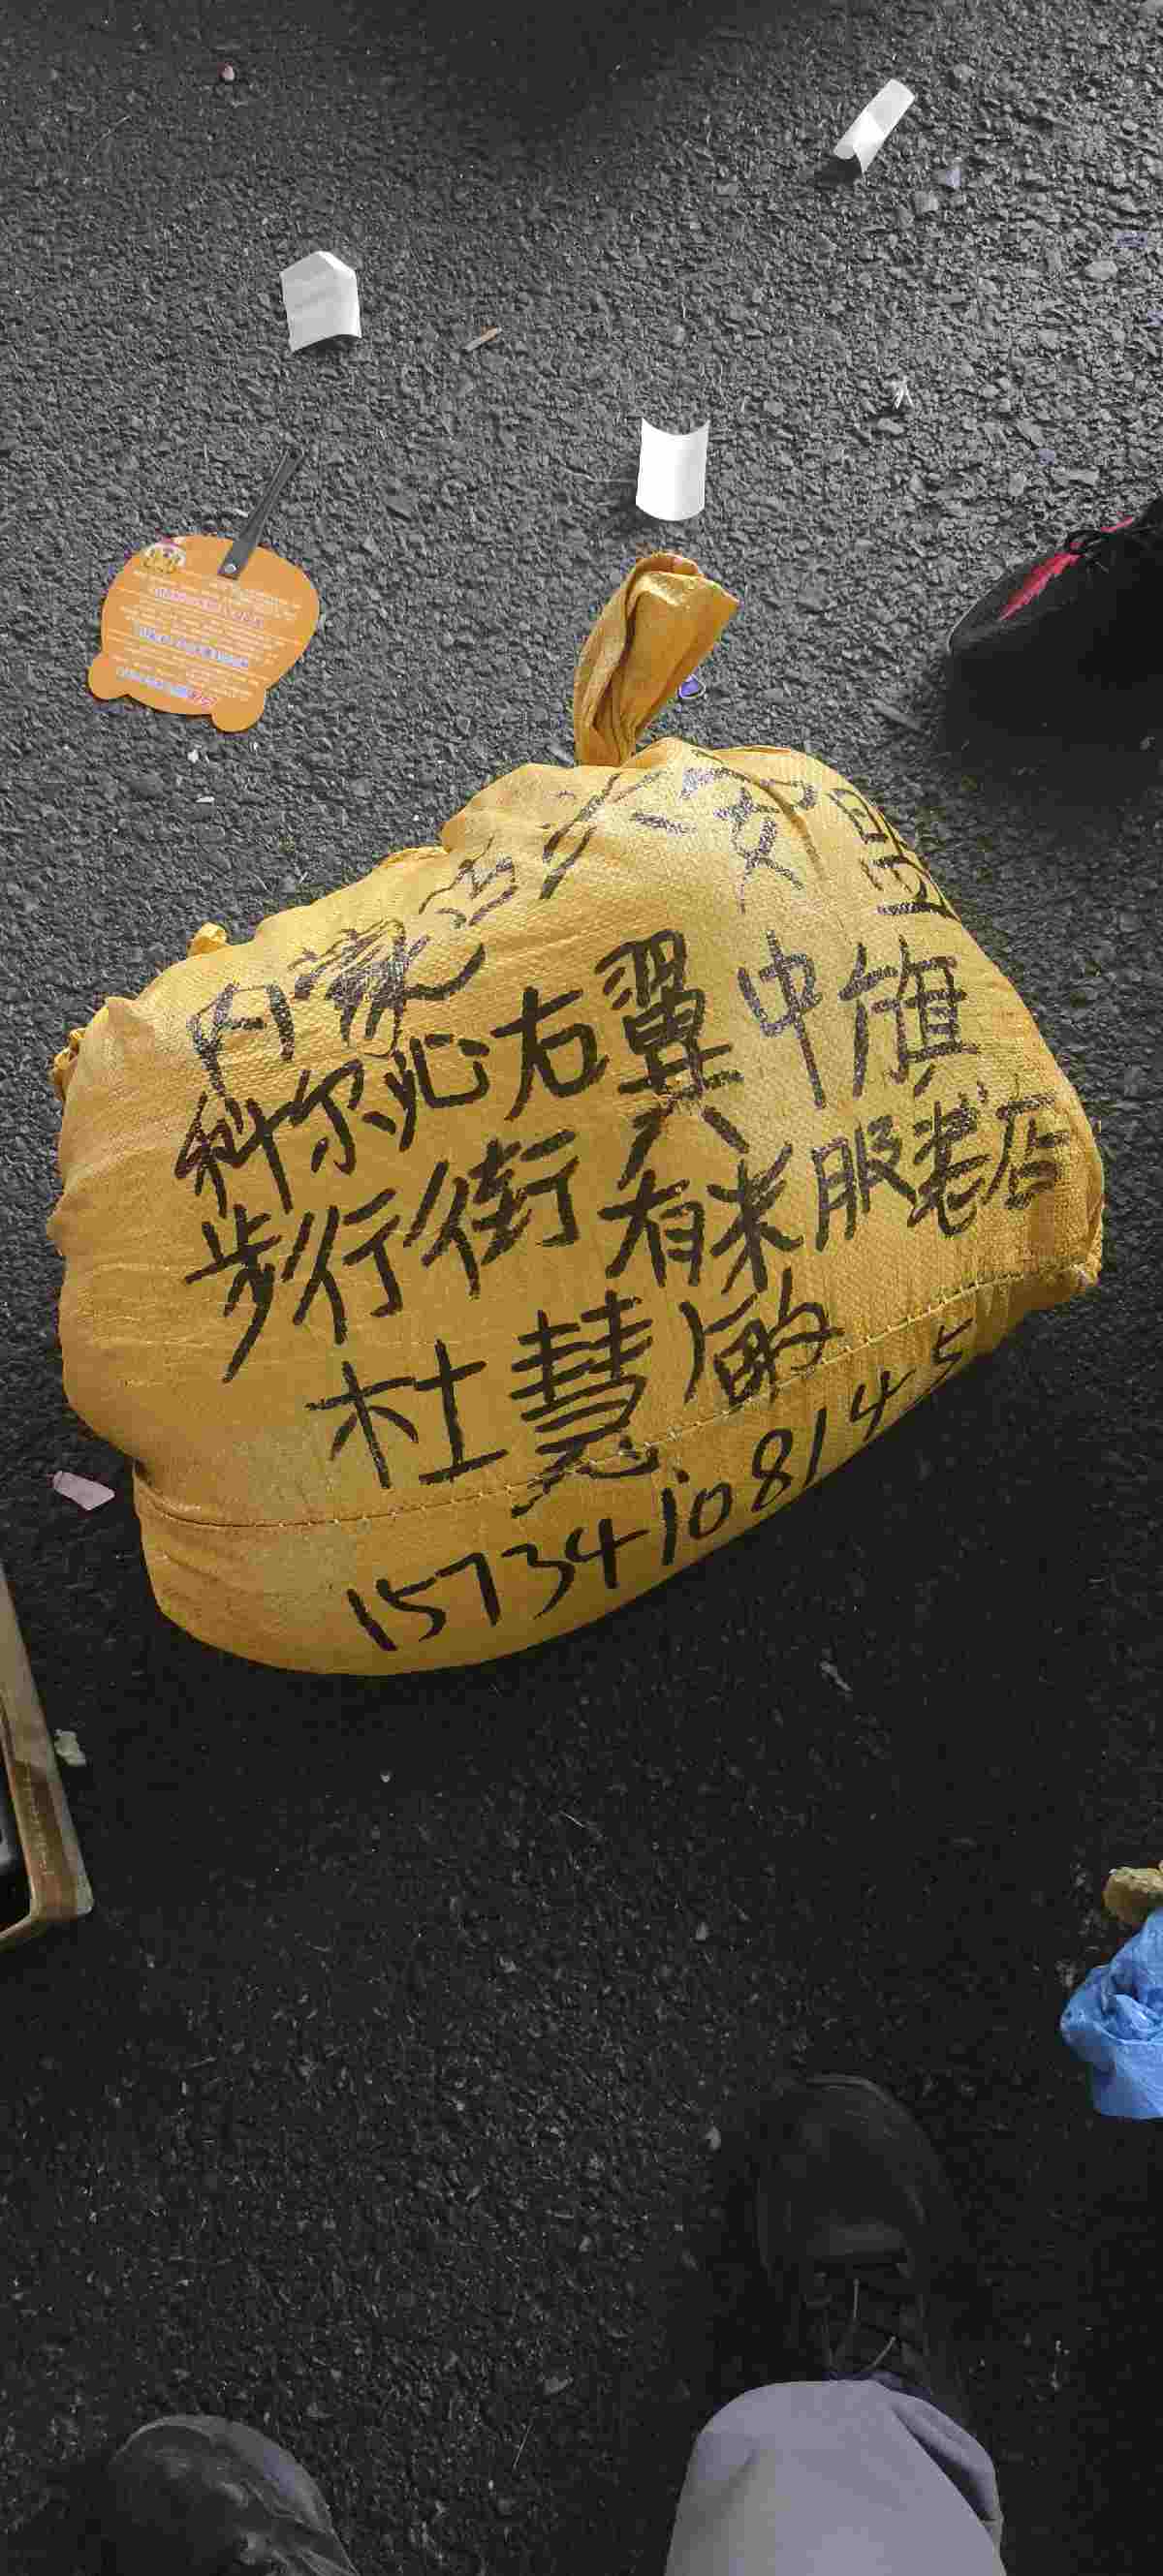 内蒙古兴安盟
科尔沁右翼中旗
步行街 有米服装店
杜慧敏
15734108145